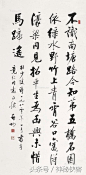 不識南塘路今知第五橋名園
依綠水野竹上青霄谷口舊相得
濠梁同見招平生為幽興未惜
馬蹄遙